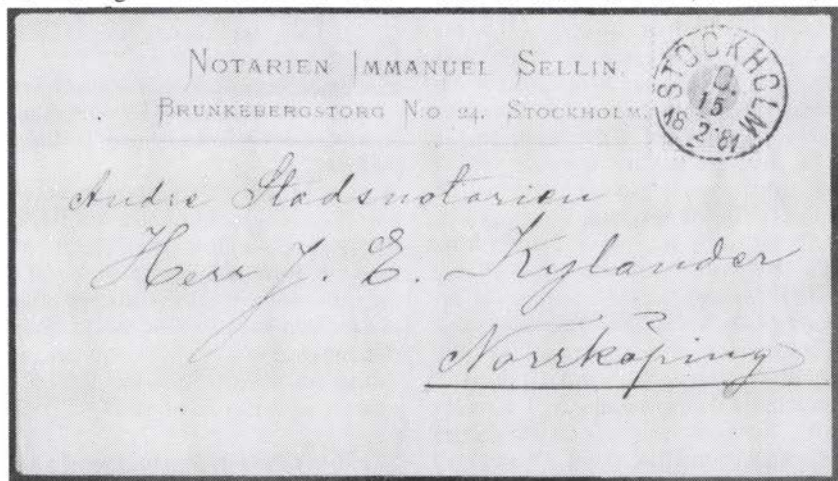 NOTARIEN IMMANUEL SELLIN.
BRUNKEBERGSTORG N:O 24. STOCKHOLM.
STOCKHOLM
D.
15
18 2 81
Andre Stadsnotarien
Herr J. E. Kylander
Norrköping